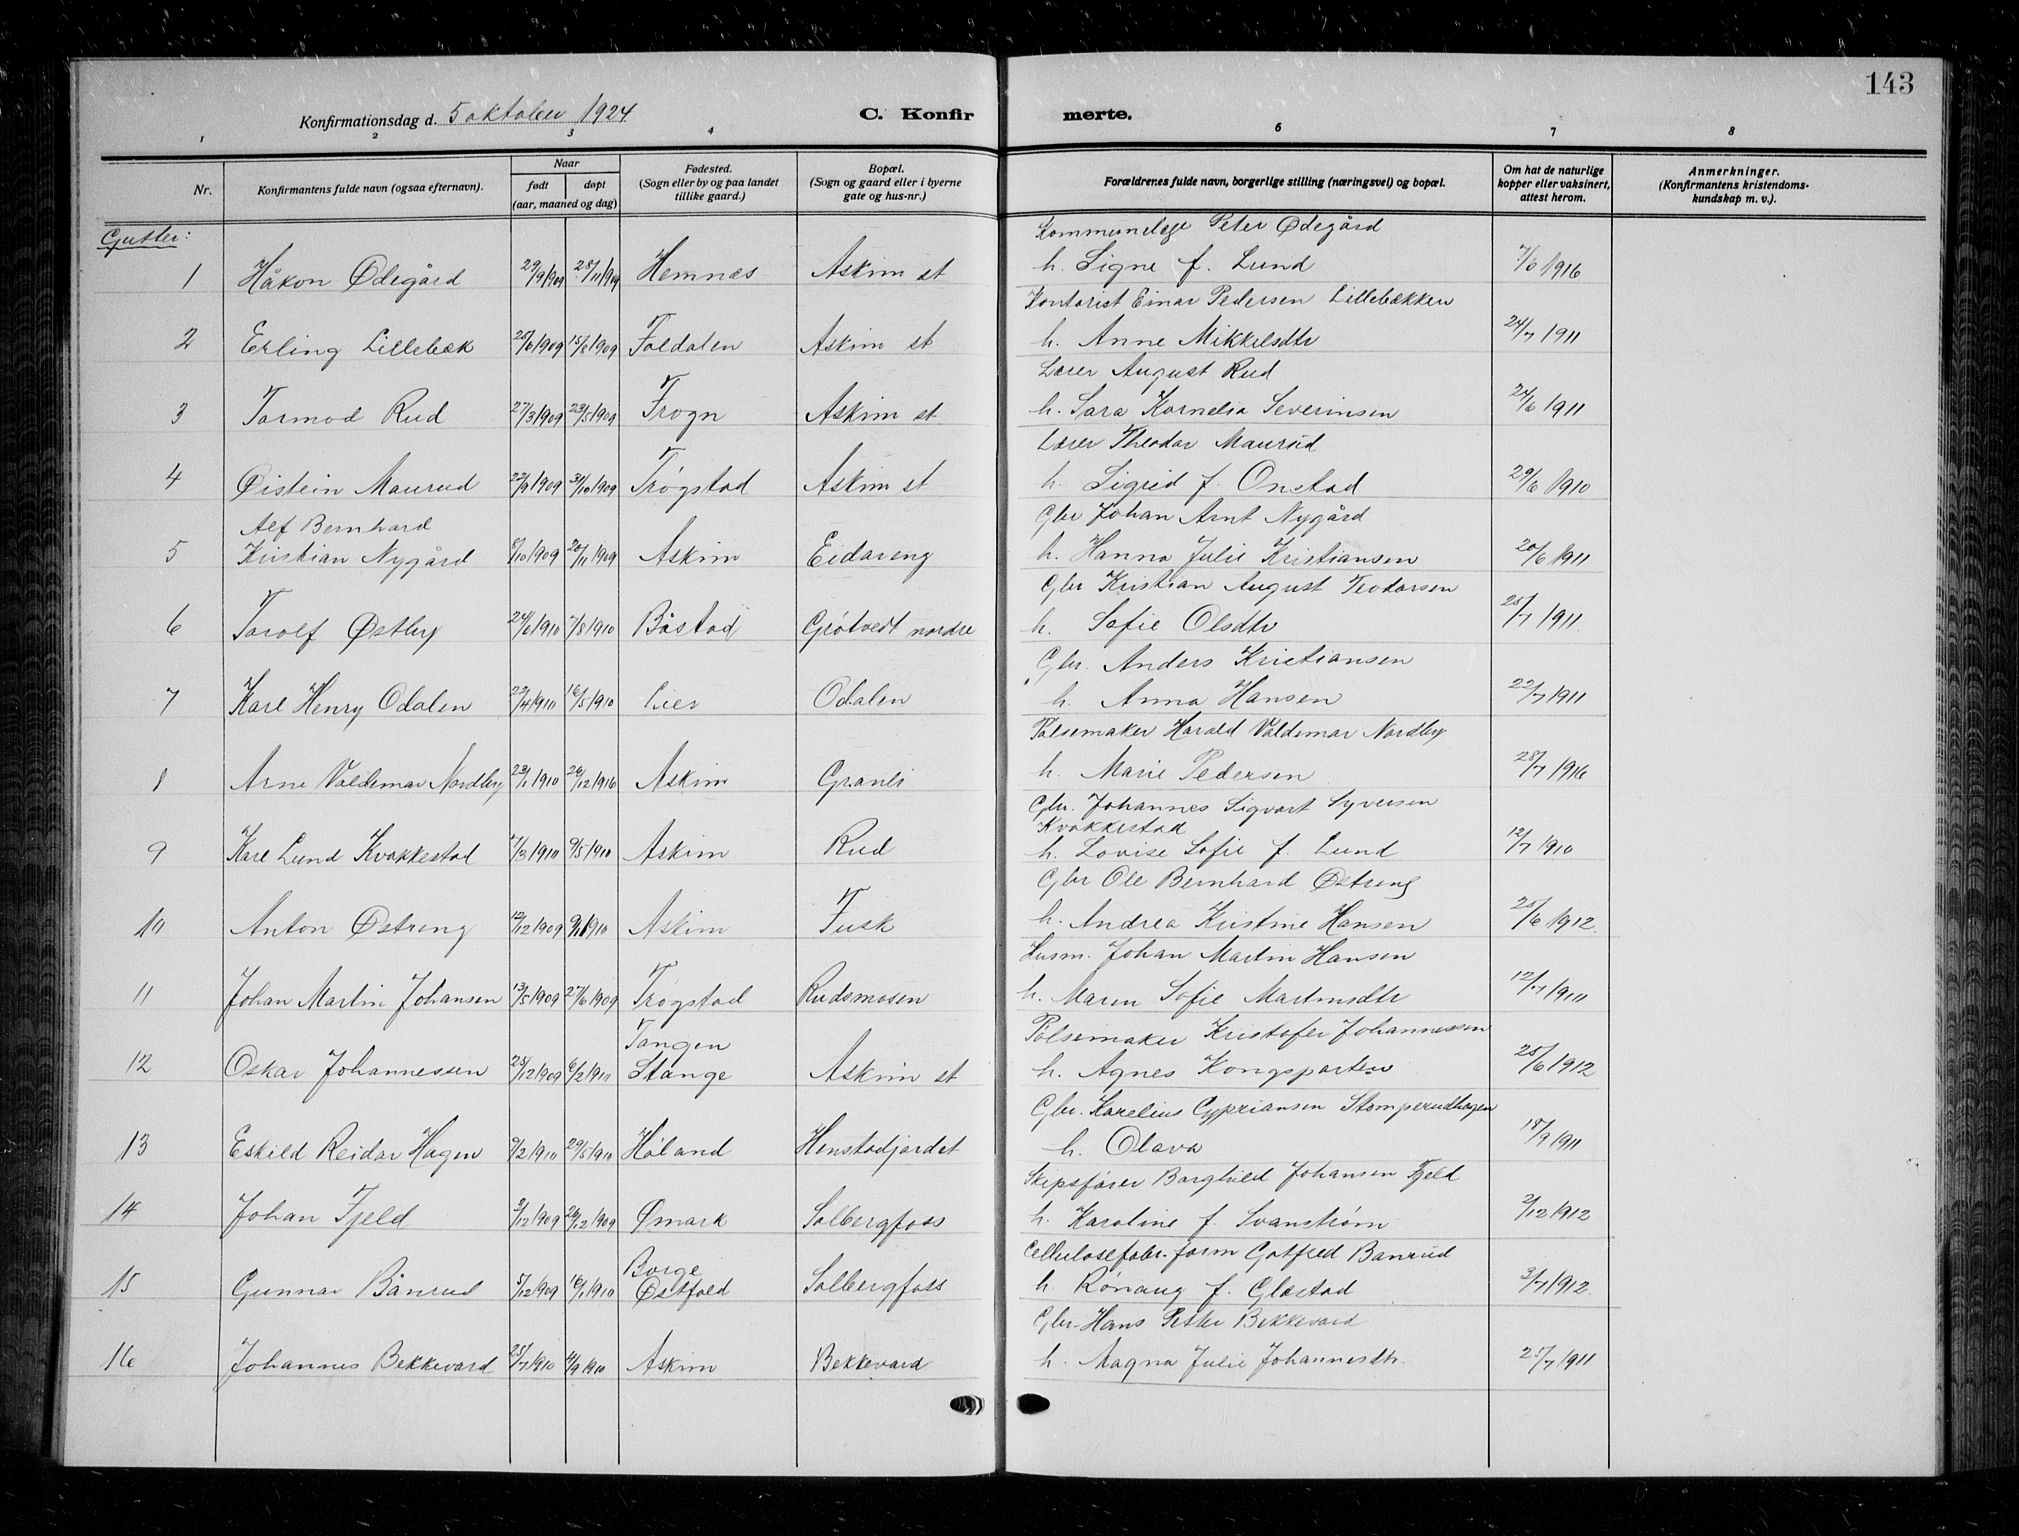 143
Konfirmationsdag d. 5 oktober 1924
C. Konfirmerte.
1 2 3 4 6 7 8
Nr. | Konfirmantens fulde navn (ogsaa efternavn). | Naar født døpt (aar, maaned og dag) | Fødested. (Sogn eller by og paa landet tillike gaard.) | Bopæl. (Sogn og gaard eller i byerne gate og hus-nr.) | Forældrenes fulde navn, borgerlige stilling (næringsvei) og bopæl. | Om hat de naturlige kopper eller vaksinert, attest herom. | Anmerkninger. (Konfirmantens kristendoms-kundskap m. v.).
Gutter:
Kommunelæge Peter Ødegård
1 Håkon Ødegård 29/9 1909 28/11 1909 Hemnæs Askim st h. Signe f. Lund 1916
Kontorist Einar Pedersen Lillebækken
2 Erling Lillebæk 25/6 1909 15/8 1909 Foldalen Askim st h. Anne Mikkelsdtr 24/7 1911
Lærer August Rud
3 Tormod Rud 27/3 1909 23/5 1909 Frogn Askim st h. Sara Kornelia Severinsen 24/6 1911
Lærer Theodor Maurud
4 Øistein Maurud 23/9 1909 31/10 1909 Trøgstad Askim st h. Sigrid f. Onstad 29/6 1910
Alf Bernhard Gbr Johan Arnt Nygård
5 Kristian Nygård 8/10 1909 28/11 1909 Askim Eidareng h. Hanna Julie Kristiansen 20/6 1911
Gbr Kristian August Teodorsen
6 Torolf Østby 24/6 1910 7/8 1910 Båstad Grøtvedt nordre h. Sofie Olsdtr 25/7 1911
Gbr. Anders Kristiansen
7 Karl Henry Odalen 1910 16/5 1910 Lier Odalen h. Anna Hansen 22/7 1911
Pølsemaker Harald Valdemar Nordby
8 Arne Valdemar Nordby 23/1 1910 26/12 1916 Askim Granli h. Marie Pedersen 28/7 1916
Gbr. Johannes Sigvart Syversen
Kvakkestad
9 Karl Lund Kvakkestad 7/3 1910 9/5 1910 Askim Rud h. Lovise Sofie f. Lund 12/7 1910
Gbr Ole Bernhard Østreng
10 Anton Østreng 12/12 1909 9/1 1910 Askim Tusk h. Andrea Kristine Hansen 25/6 1912.
Husm. Johan Martin Hansen
11 Johan Martin Johansen 13/5 1909 27/6 1909 Trøgstad Rudsmosen h. Maren Sofie Martinsdtr 12/7 1910
Tangen Pølsemaker Kristofer Johannessen
12 Oskar Johannessen 25/12 1909 6/2 1910 Stange Askim st h. Agnes Kongsparten 25/6 1912
Gbr. Karelius Cyprianсen Stomperudhagen
13 Eskild Reidar Hagen 9/2 1910 29/5 1910 Høland Henstadjordet h. Olava 18/9 1911
Skipsfører Borghild Johansen Fjeld
14 Johan Fjeld 3/12 1909 26/12 1909 Ømark Solbergfoss h. Karoline f. Svanstrøm 2/12 1912
Borge Cellulosefabr. form Gotfred Bånrud
15 Gunnar Bånrud 5/12 1909 16/1 1910 Østfold Solbergfoss h. Rønaug f. Glæstad 3/7 1912.
Gbr. Hans Petter Bekkevard
16 Johannes Bekkevard 25/7 1910 4/9 1910 Askim Bekkevard h. Magna Julie Johannesdtr. 25/7 1911